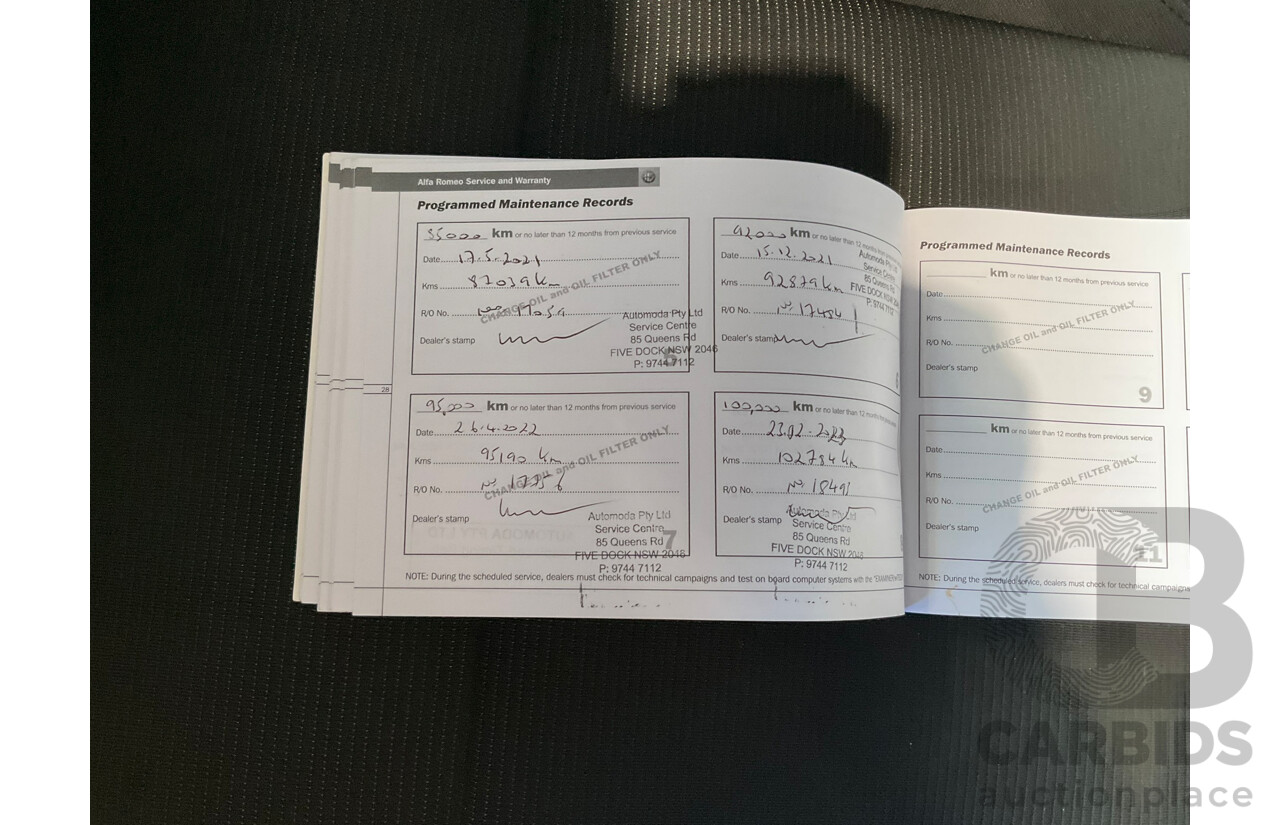 Alfa Romeo Service and Warranty
Programmed Maintenance Records
85000 km or no later than 12 months from previous service
Date 17.5.2021
Kms 87039 km
R/O No. Nº 17059
CHANGE OIL and OIL FILTER ONLY
Dealer's stamp
Automoda Pty Ltd
Service Centre
85 Queens Rd
FIVE DOCK NSW 2046
P: 9744 7112
92000 km or no later than 12 months from previous
Date 15.12.2021
Kms 92879 km
R/O No. Nº 17484
Dealer's stamp
Automoda Pty
Service Centre
85 Queens Rd
FIVE DOCK NSW
P: 9744 7112
28
95,000 km or no later than 12 months from previous service
Date 26.4.2022
Kms 95190 km
R/O No. Nº 17756
CHANGE OIL and OIL FILTER ONLY
Dealer's stamp
Automoda Pty Ltd
Service Centre
85 Queens Rd
FIVE DOCK NSW 2046
P: 9744 7112
7
100,000 km or no later than 12 months from previous
Date 23.02.2023
Kms 102784 km
R/O No. Nº 18491
Dealer's stamp
Automoda Pty Ltd
Service Centre
85 Queens Rd
FIVE DOCK NSW 2046
P: 9744 7112
NOTE: During the scheduled service, dealers must check for technical campaigns and test on board computer systems with the
Programmed Maintenance Records
km or no later than 12 months from previous service
Date
Kms
R/O No.
CHANGE OIL and OIL FILTER ONLY
Dealer's stamp
9
km or no later than 12 months from previous service
Date
Kms
R/O No.
CHANGE OIL and OIL FILTER ONLY
Dealer's stamp
11
NOTE: During the scheduled service, dealers must check for technical campaigns
CARBIDS
auctionplace